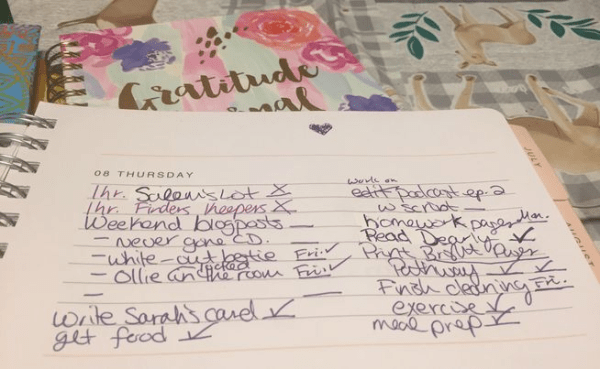 Gratitude
08 THURSDAY
1hr. Salem's Lot X
1hr. Finders Keepers X
Weekend blogposts —
- never gone C.D. —
- white-out bertie Fri. ✓
- Ollie and the locked room Fri. ✓
- —
write Sarah's card ✓
get food ✓
work on
edit podcast ep. 2
w script —
homework pages Mon.
Read Dearly ✓
Print Bright Paper
Pathway ✓ ✓
Finish cleaning Fri.
exercise ✓
meal prep ✓
JULY
AUGUST